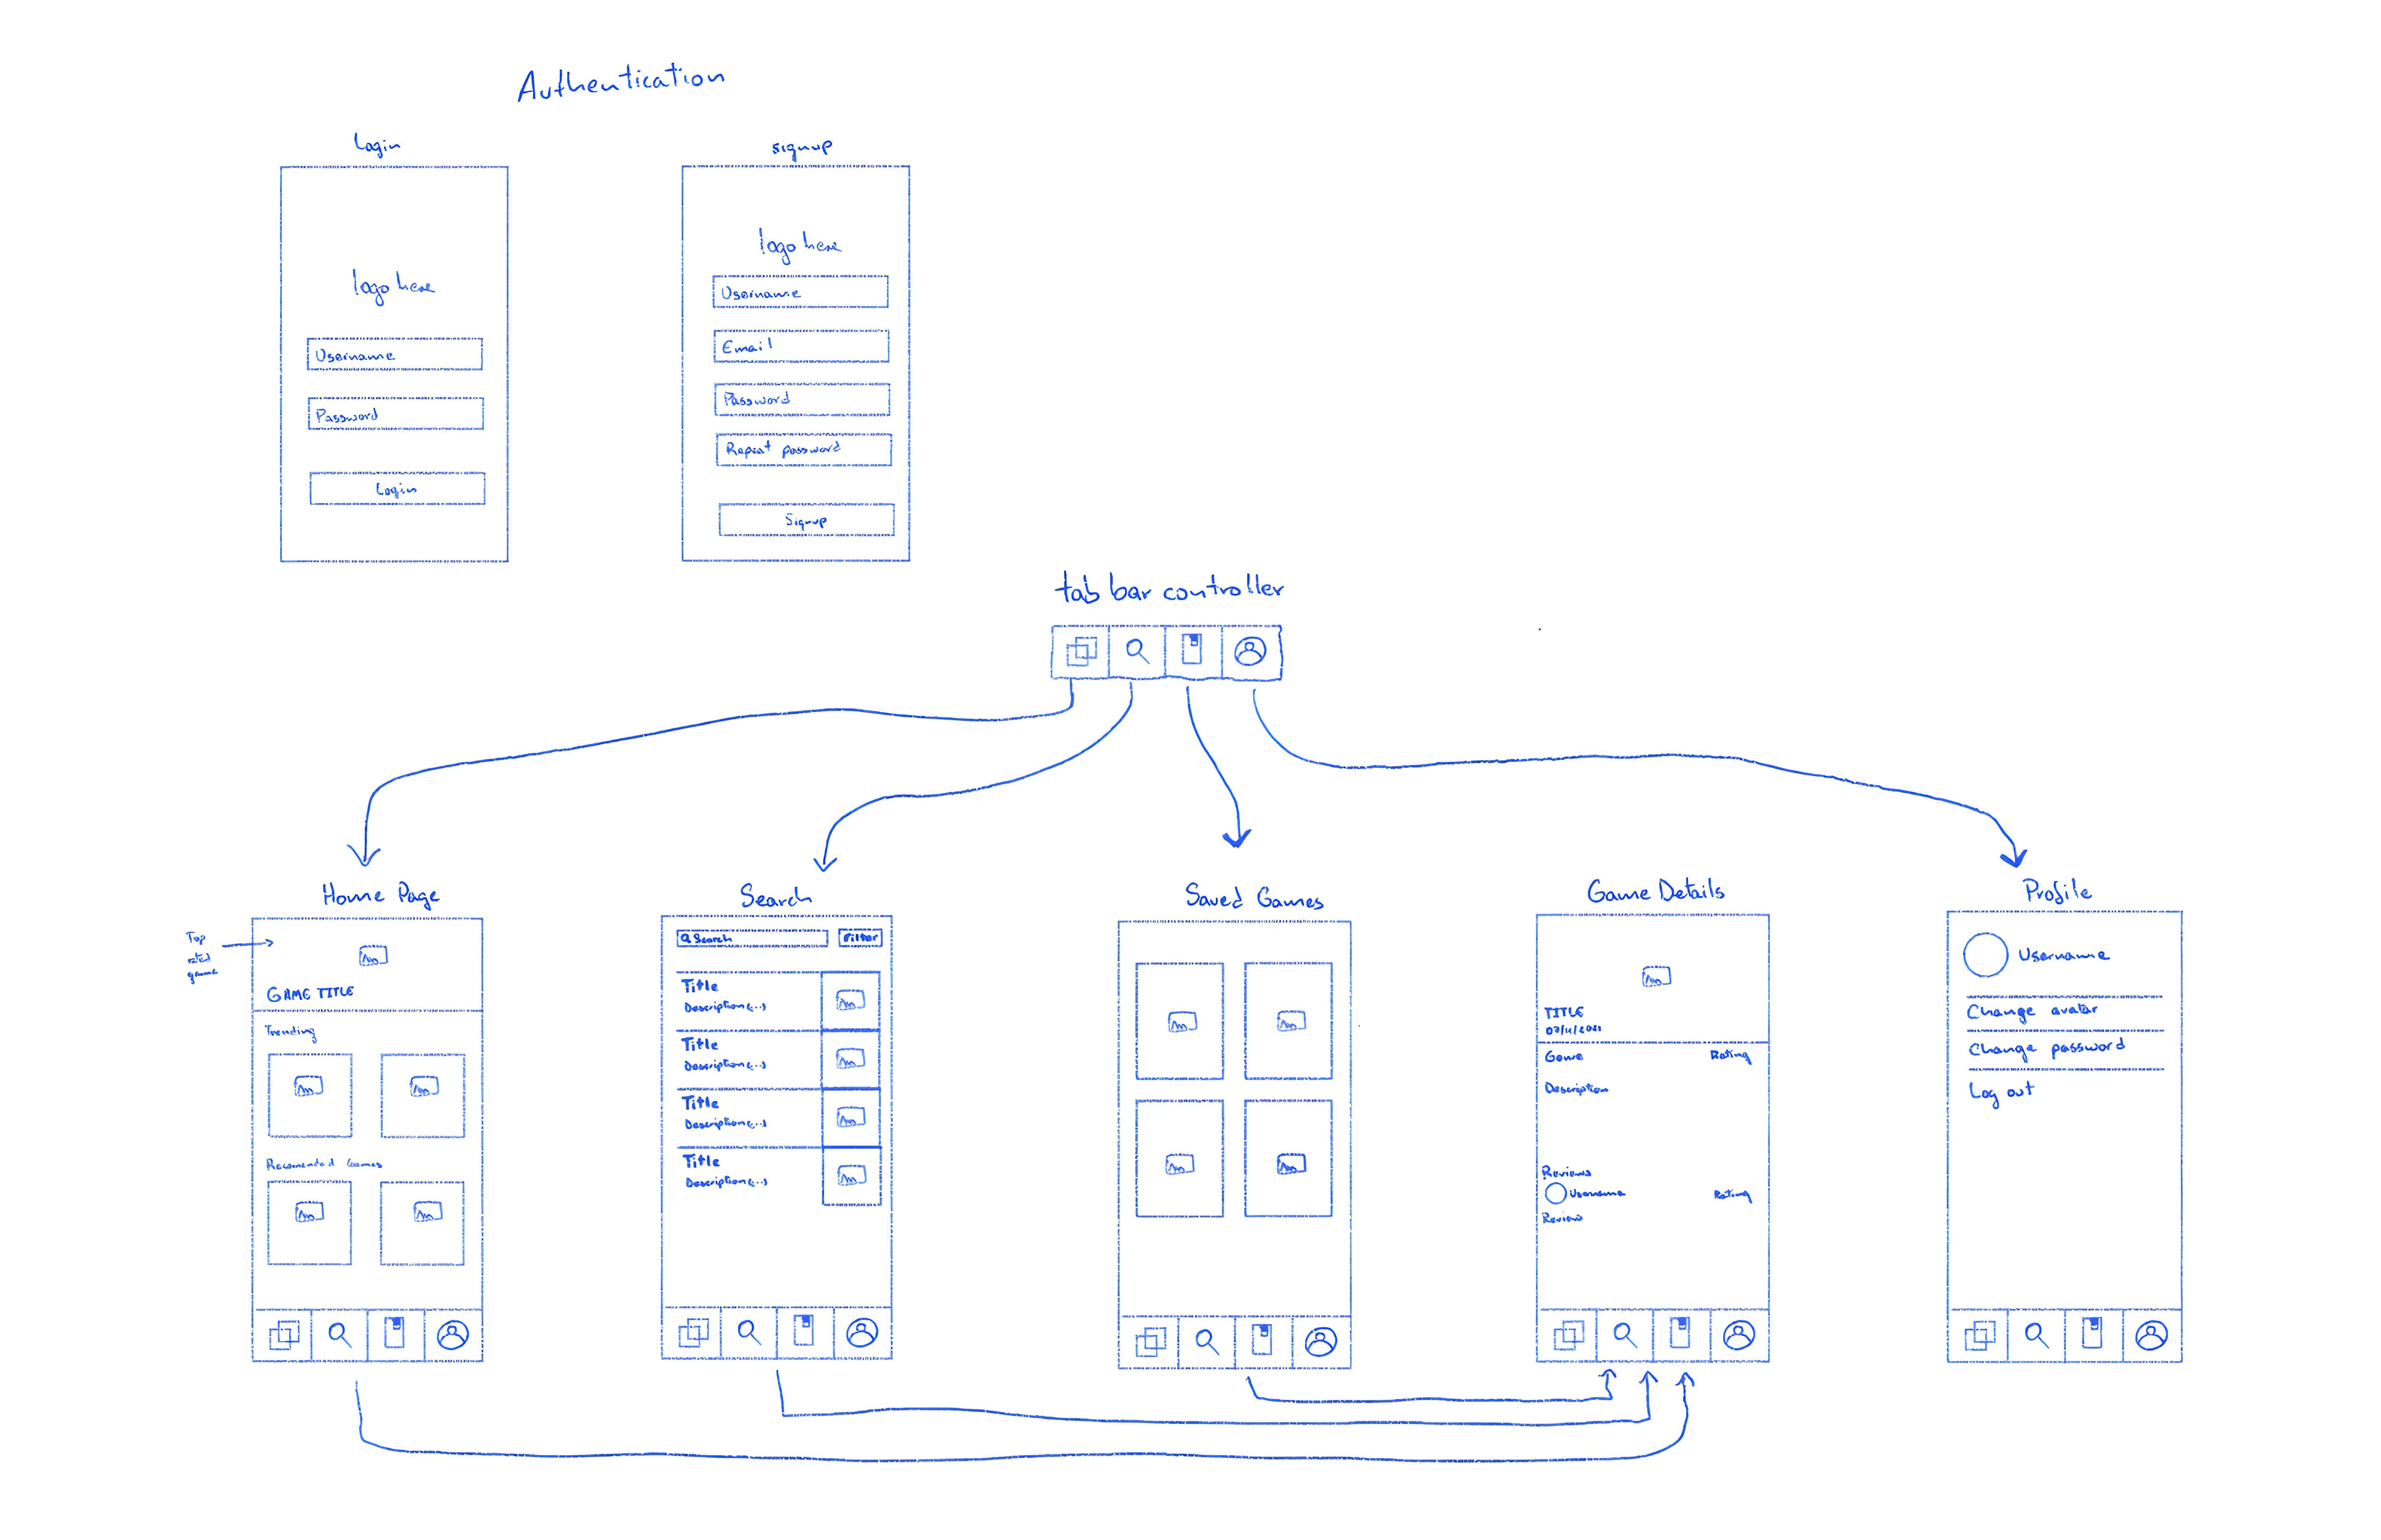 Authentication
Login
logo here
Username
Password
Login
signup
logo here
Username
Email
Password
Repeat password
Signup
tab bar controller
Home Page
Top
rated
game
GAME TITLE
Trending
Recomended Games
Search
Search
Filter
Title
Description(...)
Title
Description(...)
Title
Description(...)
Title
Description(...)
Saved Games
Game Details
TITLE
Genre
Rating
Description
Reviews
Username
Rating
Review
Profile
Username
Change avatar
Change password
Log out